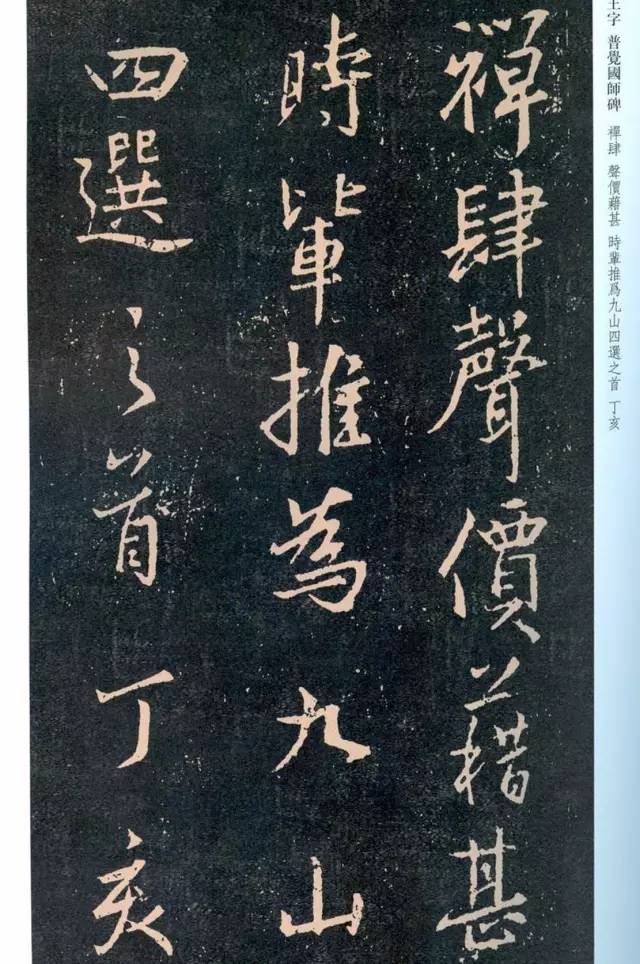 王字 普覺國師碑 禪肆 聲價藉甚 時輩推爲九山四選之首 丁亥
禪肆聲價藉甚
時輩推為九山
四選之首丁亥